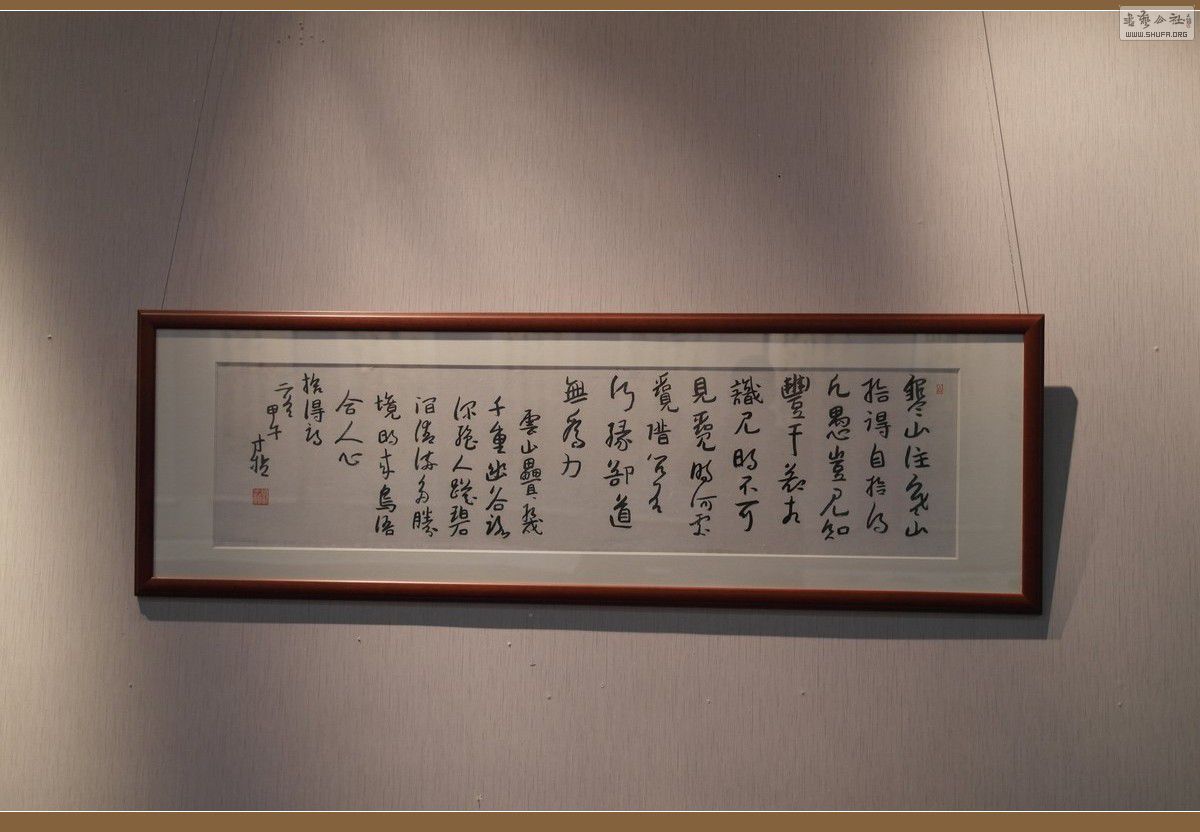 寒山住寒山
拾得自拾得
凡愚豈見知
豐干卻相
識見時不可
見覓時何處
覓階問有
何緣卻道
無為力
雲山疊疊幾
千重幽谷路
深絕人蹤碧
澗清流多勝
境時來鳥語
合人心
拾得詩
二首 甲午
書藝公社
WWW.SHUFA.ORG